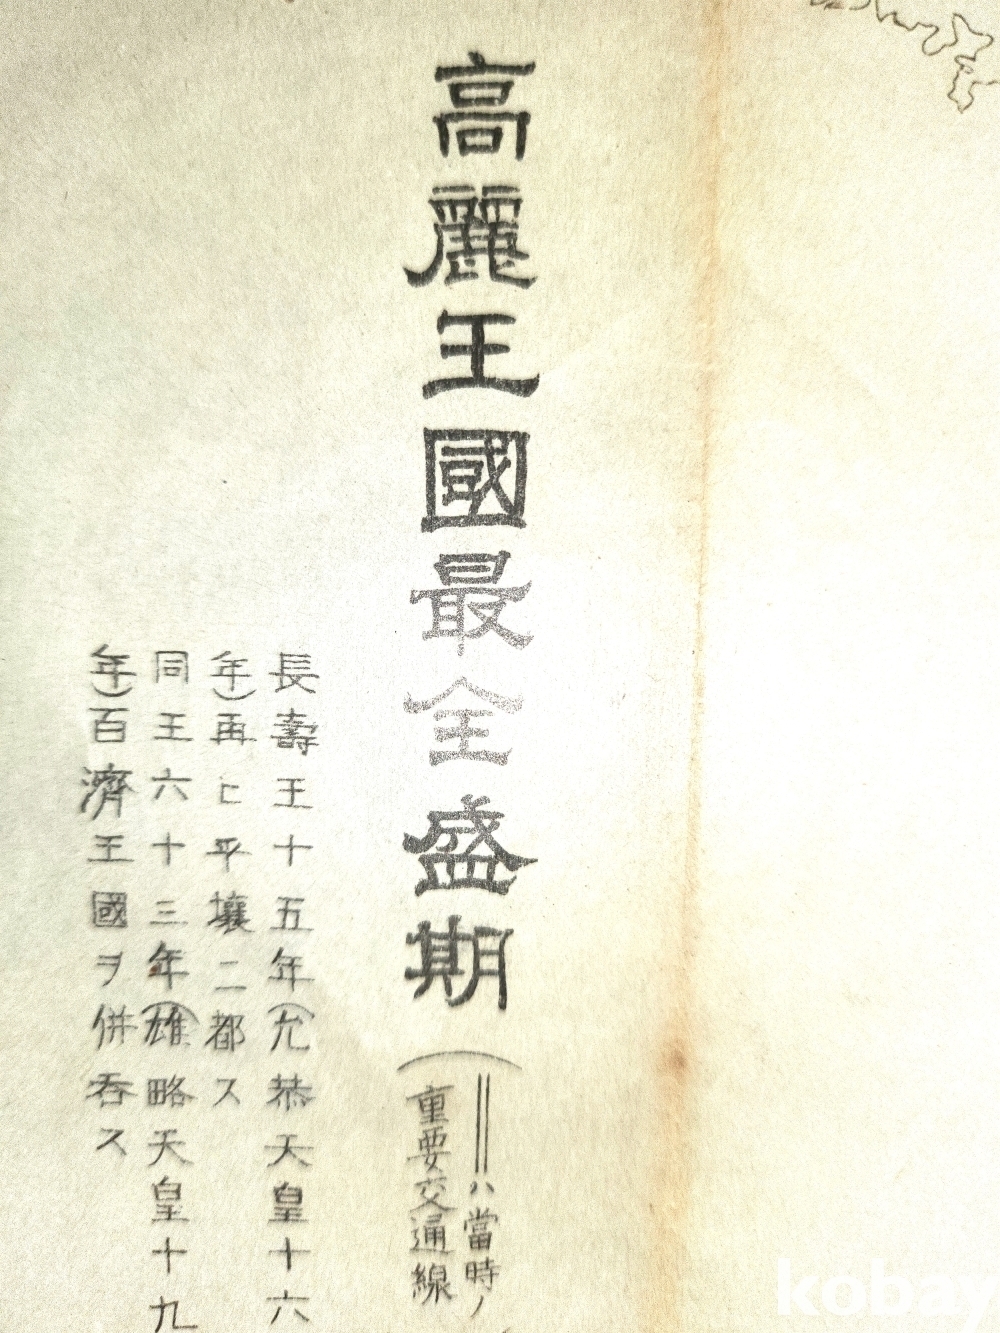 高麗王國最全盛期
(＝ハ當時ノ
重要交通線
長壽王十五年(允恭天皇十六
年)再ヒ平壤ニ都ス
同王六十三年(雄略天皇十九
年)百濟王國ヲ併呑ス
kobay